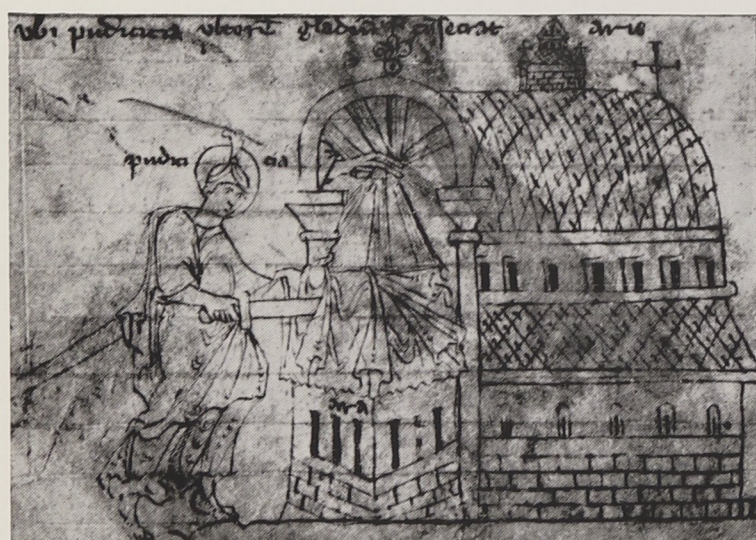 vbi pudicicia vltorē gladium cōsecrat aris
pudici cia
ara